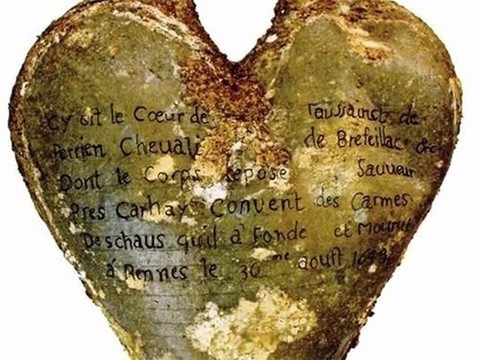 Cy Git le Cœur de Toussainct de
Perrien Cheuali de Brefeillac
Dont le Corps repose Sauueur
Pres Carhay Convent des Carmes
Deschaus quil a Fonde et Mourut
á Rennes le 30 me aoust